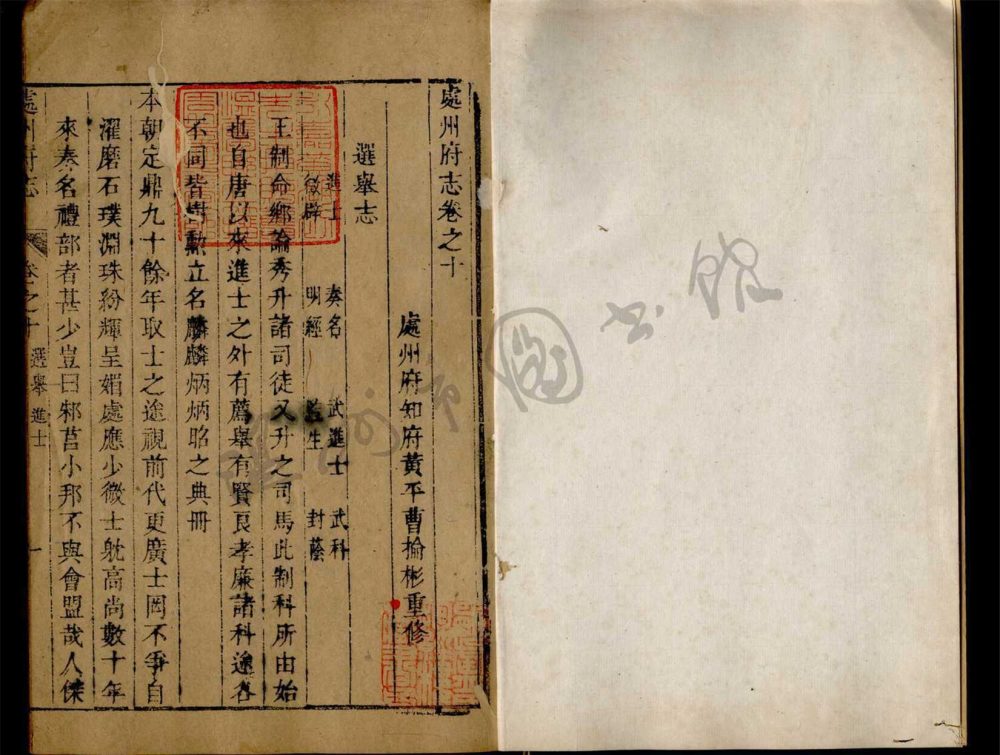 處州府志卷之十
處州府知府黃平曹掄彬重修
選舉志
進士 奏名 武進士 武科
徵辟 明經 監生 封蔭
王制命鄉論秀升諸司徒又升之司馬此制科所由始
也自唐以來進士之外有薦舉有賢良孝廉諸科途各
不同皆樹勲立名麟麟炳炳昭之典冊
本朝定鼎九十餘年取士之途視前代更廣士罔不爭自
濯磨石璞淵珠紛輝呈媚處應少微士躭高尚數十年
來奏名禮部者甚少豈曰邾莒小邦不與會盟哉人傑
處州府志 卷之十 選舉 進士 一
圖書館